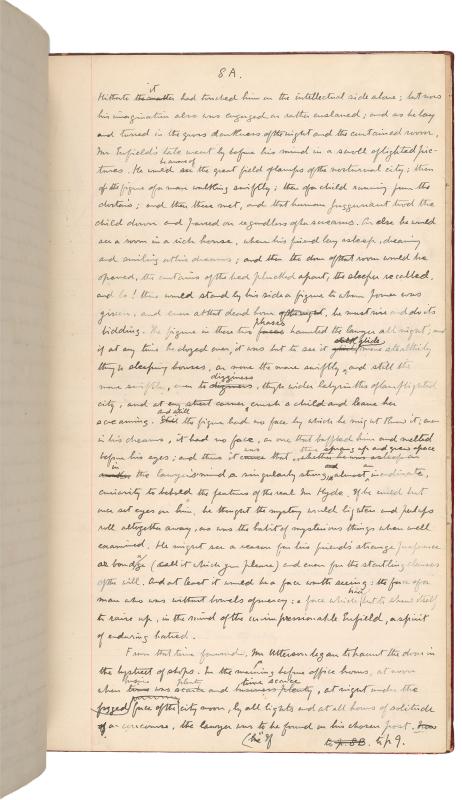 8A.
it
Hitherto the matter had touched him on the intellectual side alone; but now
his imagination also was engaged or rather enslaved; and as he lay
and tossed in the gross darkness of the night and the curtained room,
Mr Enfield's tale went by before his mind in a scroll of lighted pic-
tures. He would be aware of the great field of lamps of the nocturnal city; then
of the figure of a man walking swiftly; then of a child running from the
doctor's; and then these met, and that human Juggernaut trod the
child down and passed on regardless of her screams. Or else he would
see a room in a rich house, where his friend lay asleep, dreaming
and smiling at his dreams; and then the door of that room would be
opened, the curtains of the bed plucked apart, the sleeper recalled,
and lo! there would stand by his side a figure to whom power was
given, and even at that dead hour of the night, he must rise and do its
bidding. The figure in these two phases haunted the lawyer all night; and
if at any time he dozed over, it was but to see it glide more stealthily
through sleeping houses, or move the more swiftly and still the
more swiftly, even to dizziness, through wider labyrinths of lamplighted
city, and at every street corner crush a child and leave her
screaming. and still the figure had no face by which he might know it; even
in his dreams, it had no face, or one that baffled him and melted
before his eyes; and thus it was that there sprang up and grew apace
in the lawyer's mind a singularly strong, almost an inordinate,
curiosity to behold the features of the real Mr Hyde. If he could but
once set eyes on him, he thought the mystery would lighten and perhaps
roll altogether away, as was the habit of mysterious things when well
examined. He might see a reason for his friend's strange preference
or bondage (call it which you please) and even for the startling clauses
of the will. And at least it would be a face worth seeing: the face of a
man who was without bowels of mercy: a face which had but to show itself
to raise up, in the mind of the unimpressionable Enfield, a spirit
of enduring hatred.
From that time forward, Mr Utterson began to haunt the door in
the bystreet of shops. In the morning before office hours, at noon
when business was plenty and time scarce, at night under the
face of the fogged city moon, by all lights and at all hours of solitude
or concourse, the lawyer was to be found on his chosen post.
to p. 8B. to p 9.